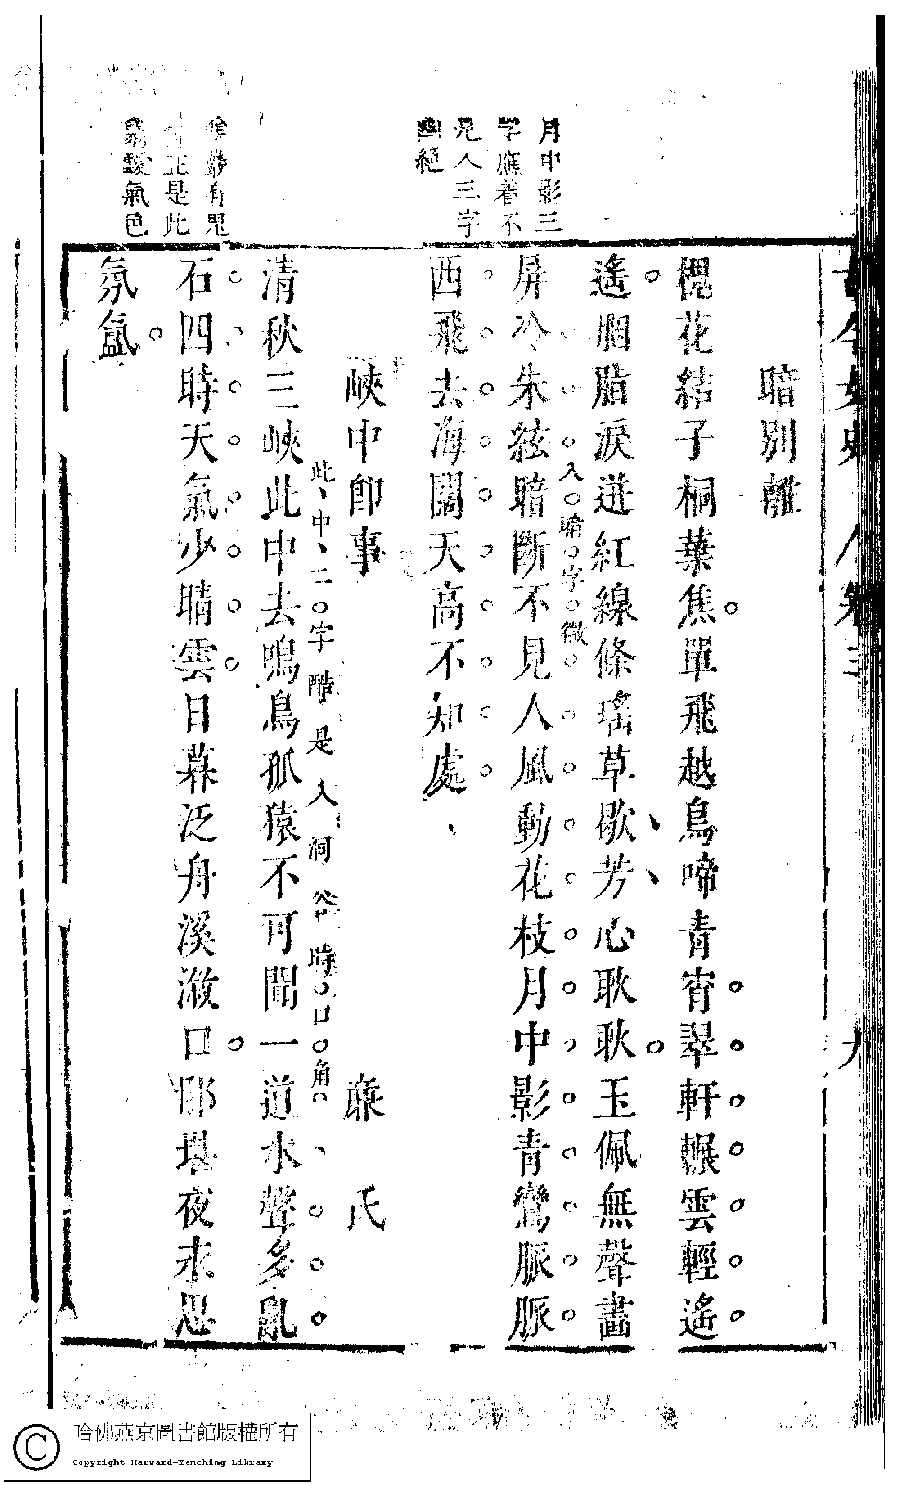 月中影三
字應着不
見人三字
幽絕
是此
氣色
暗別離
槐花結子桐葉焦單飛越鳥啼青霄翠軒輾雲輕遙
遙胭脂淚迸紅線條瑤草歇芳心耿耿玉佩無聲畫
屏冷朱絃暗斷不見人風動花枝月中影青鸞脈脈
入暗字微
西飛去海闊天高不知處
峽中即事 蘼氏
此中二字酷是入洞谷時口角
清秋三峽此中去鳴鳥孤猿不可聞一道水聲多亂
石四時天氣少晴雲日暮泛舟溪漵口那堪夜永思
氛氳
哈佛燕京圖書館版權所有
Copyright Harvard-Yenching Library